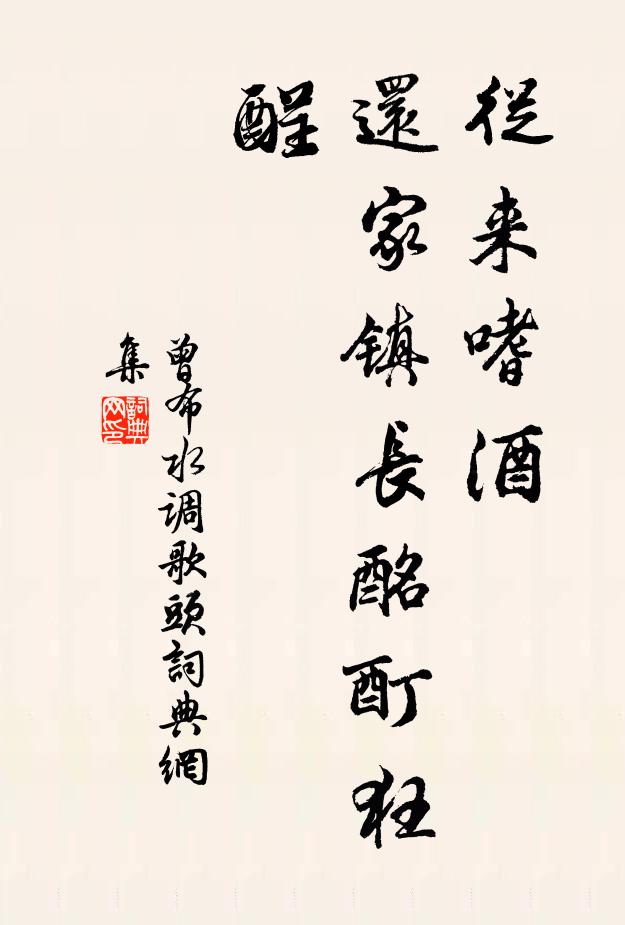 從来嗜酒
還家鎮長酩酊狂
酲
曾布水调歌頭詞典網
集
詞典
网印